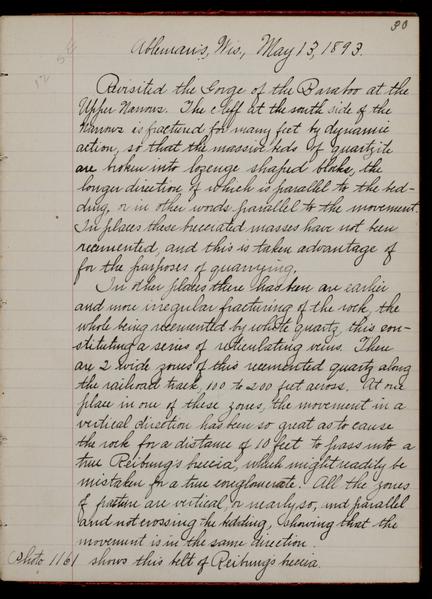 30
Ableman's, Wis., May 13, 1893.
Revisited the Gorge of the Baraboo at the
Upper Narrows. The cliff at the south side of the
Narrows is fractured for many feet by dynamic
action, so that the massive beds of quartzite
are broken into lozenge shaped blocks, the
longer direction of which is parallel to the bed-
ding, or in other words parallel to the movement.
In places these brecciated masses have not been
recemented, and this is taken advantage of
for the purposes of quarrying.
In other places there has been an earlier
and more irregular fracturing of the rock, the
whole being recemented by white quartz, this con-
stituting a series of reticulating veins. There
are 2 wide zones of this recemented quartz along
the railroad track, 100 to 200 feet across. At one
place in one of these zones, the movement in a
vertical direction has been so great as to cause
the rock for a distance of 10 feet to pass into a
true Reibungs breccia, which might readily be
mistaken for a true conglomerate. All the zones
of fracture are vertical, or nearly so, and parallel
and not crossing the bedding, showing that the
movement is in the same direction.
Photo 1161 shows this belt of Reibungs breccia.